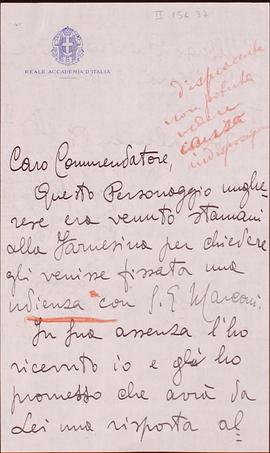 II 156 37
REALE ACCADEMIA D'ITALIA
dispiacente
non potuta
vedere
causa
indisposizione
Caro Commendatore,
Questo Personaggio unghe-
rese era venuto stamani
alla Farnesina per chiedere
gli venisse fissata una
udienza con S. E. Marconi.
In Sua assenza l'ho
ricevuto io e gli ho
promesso che avrà da
Lei una risposta al